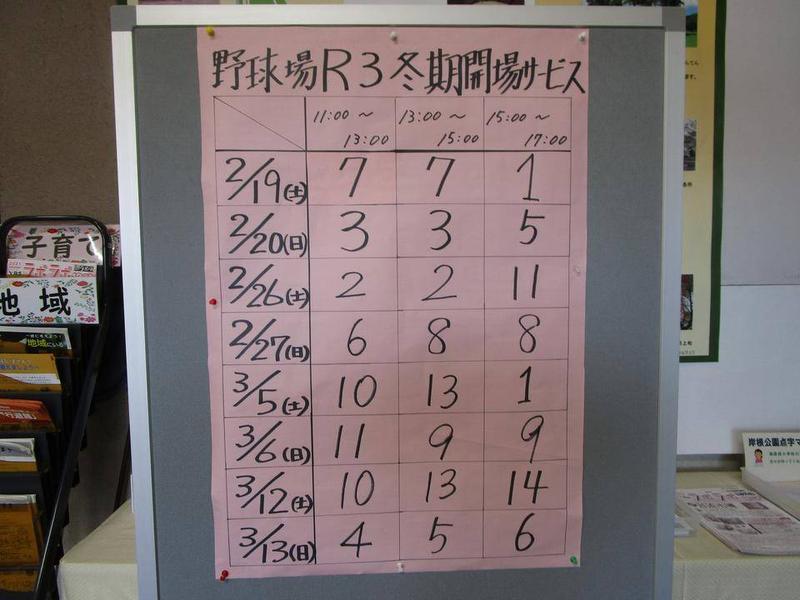 野球場R3冬期開場サービス
11:00～13:00 13:00～15:00 15:00～17:00
2/19(土) 7 7 1
2/20(日) 3 3 5
2/26(土) 2 2 11
2/27(日) 6 8 8
3/5(土) 10 13 1
3/6(日) 11 9 9
3/12(土) 10 13 14
3/13(日) 4 5 6
子育て
ラポラポ
地域
地域にいる
岸根公園点字マ